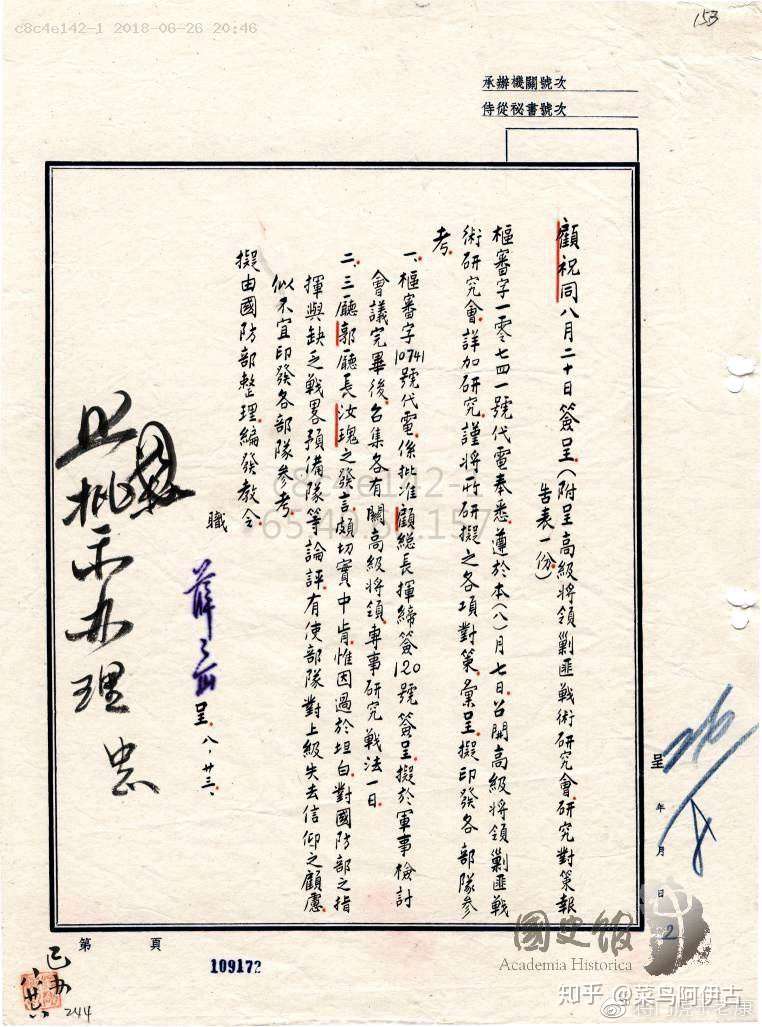 c8c4e142-1 2018-06-26 20:46
153
承辦機關號次
侍從祕書號次
顧祝同八月二十日簽呈(附呈高級將領剿匪戰術研究會研究對策報
告表一份)
樞審字一零七四一號代電奉悉遵於本(八)月七日召開高級將領剿匪戰
術研究會.詳加研究.謹將所研擬之各項對策.彙呈.擬印發各部隊參
考.
一.樞審字10741號代電.係批准顧總長揮締簽120號簽呈.擬於軍事檢討
會議完畢後.召集各有關高級將領.專事研究戰法一日.
二.三廳郭廳長汝瑰之發言.頗切實中肯.惟因過於坦白.對國防部之指
揮與缺乏戰畧預備隊等論評.有使部隊對上級失去信仰之顧慮.
似不宜印發各部隊參考.
擬由國防部整理.編發教令.
職
呈.八.廿三.
批示办理
呈 年 月 日
2
第 頁
109172
已办
八廿六
244
c8c4e142-1
國史館
Academia Historica
知乎 @菜鸟阿伊古